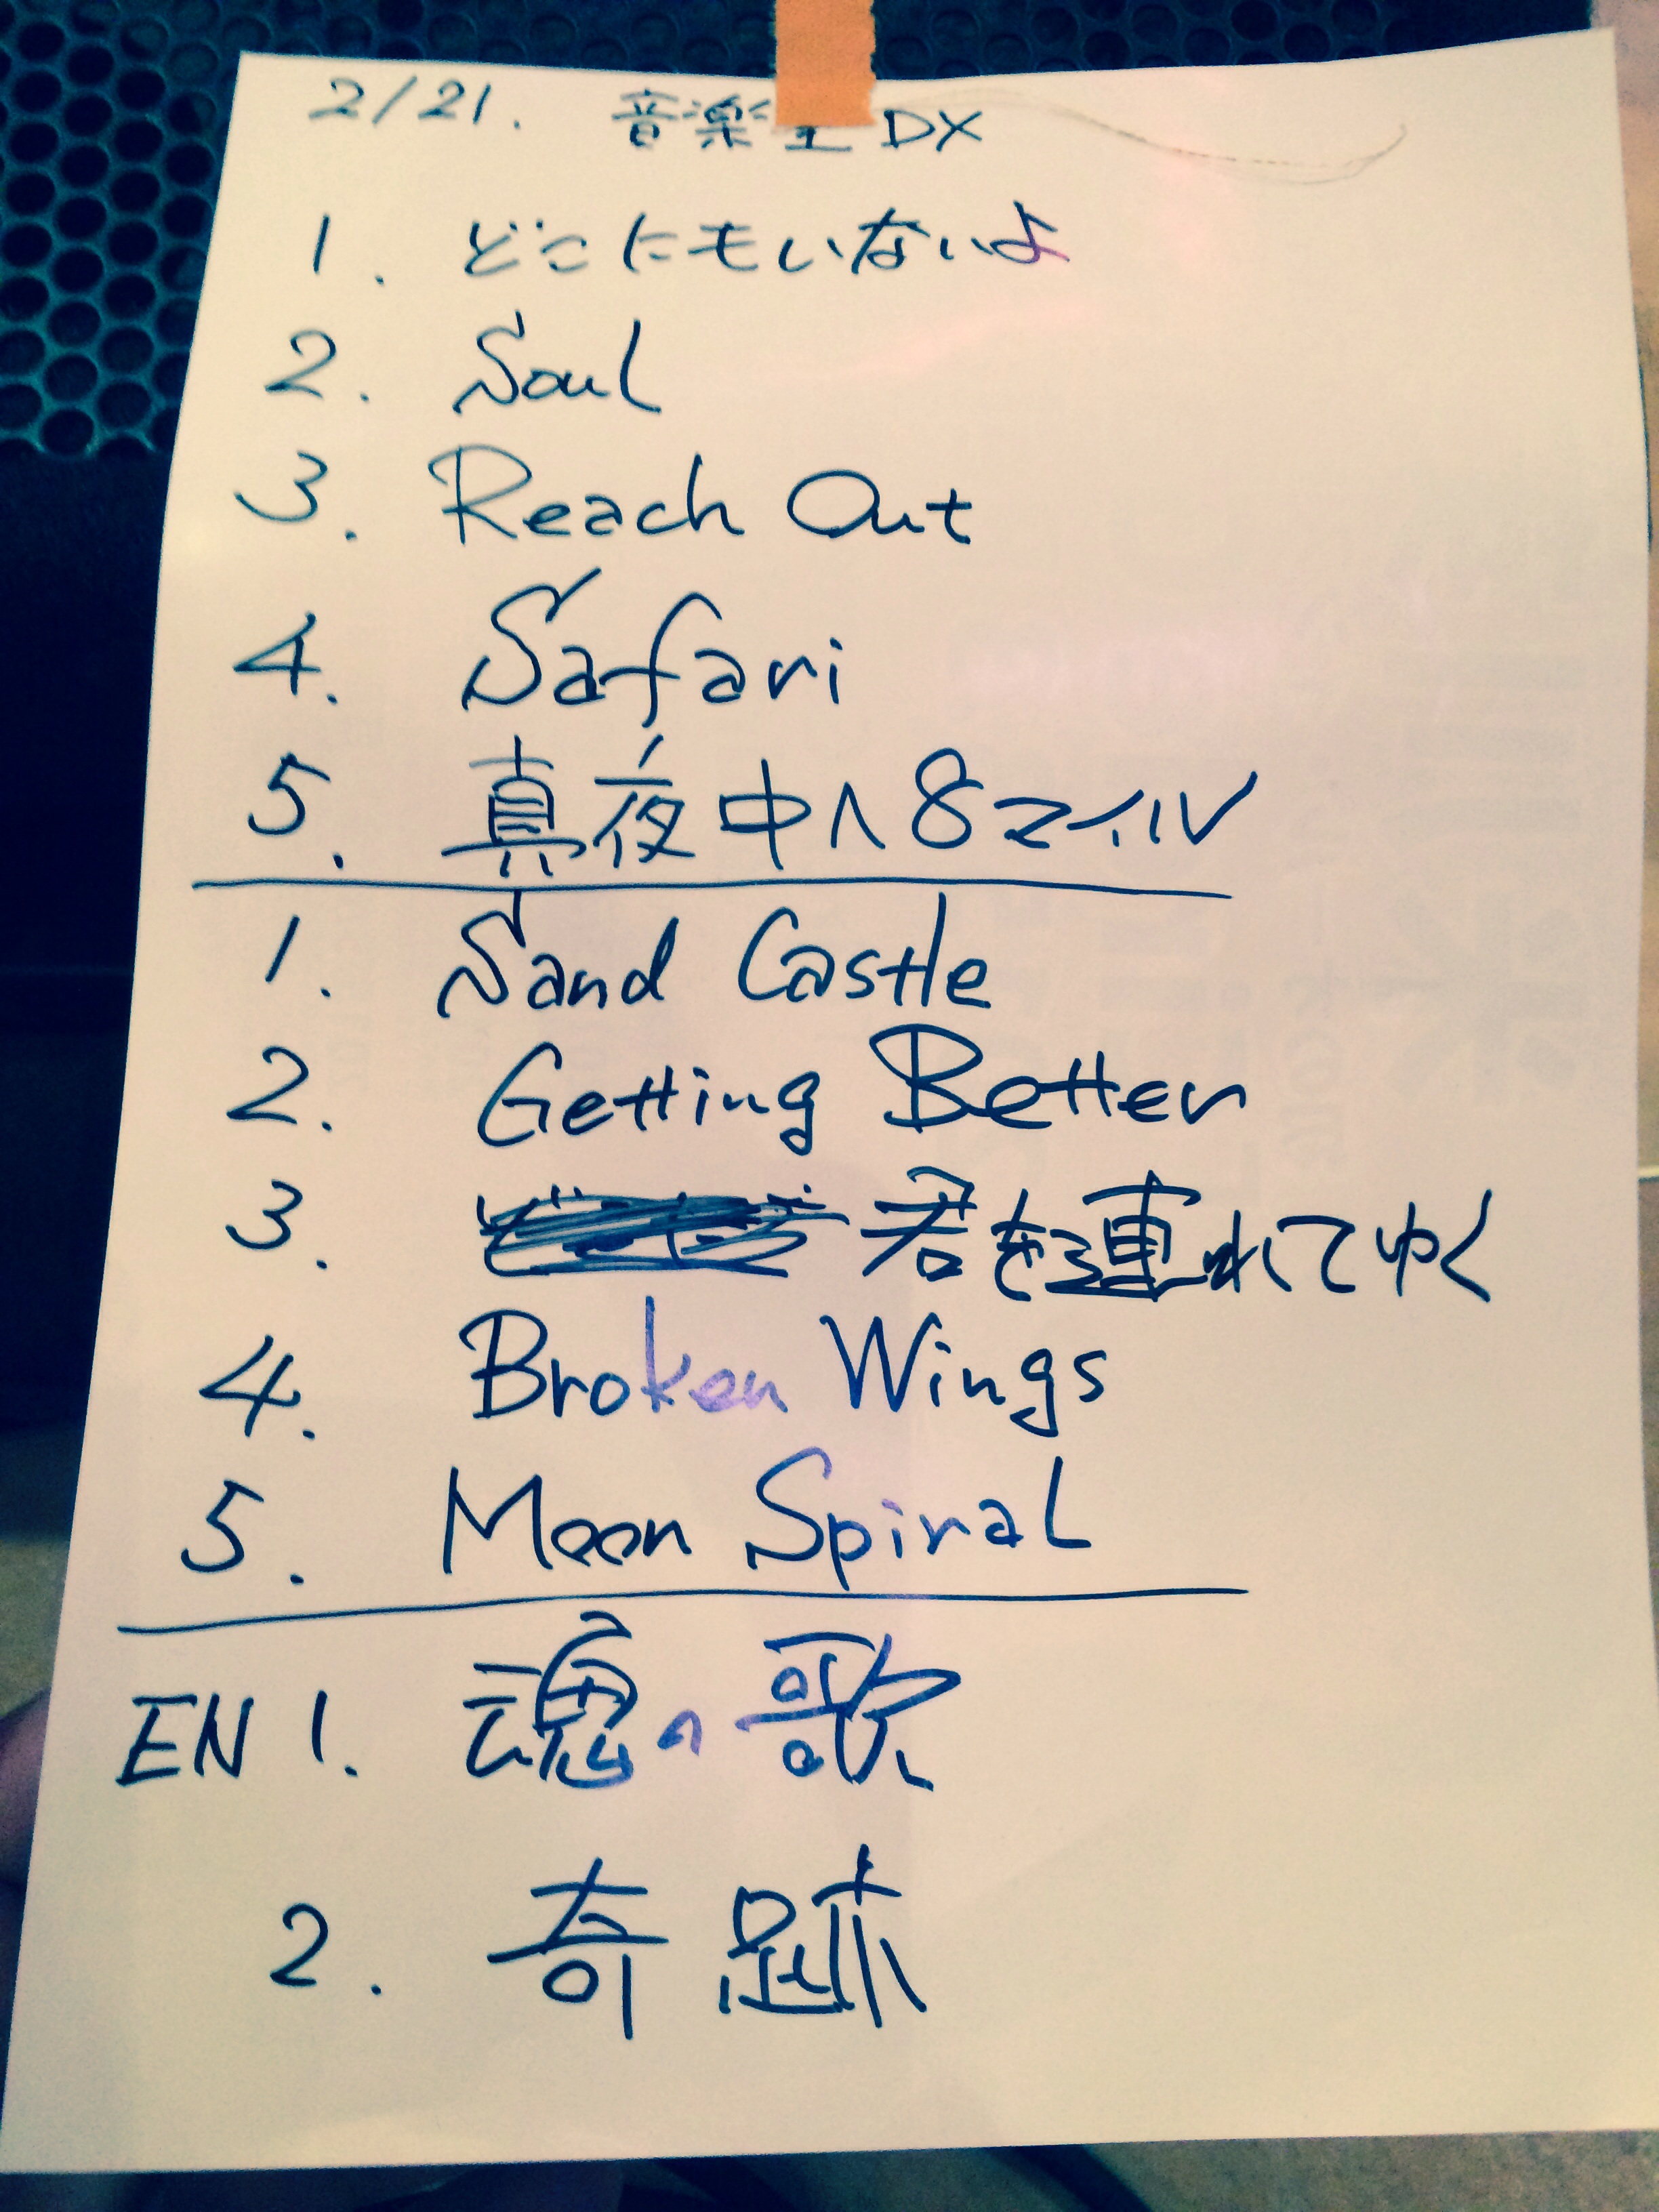 2/21. 音楽室 DX
1. どこにもいないよ
2. Soul
3. Reach Out
4. Safari
5. 真夜中へ8マイル
1. Sand Castle
2. Getting Better
3. 君を連れてゆく
4. Broken Wings
5. Moon Spiral
EN 1. 魂の歌
2. 奇跡